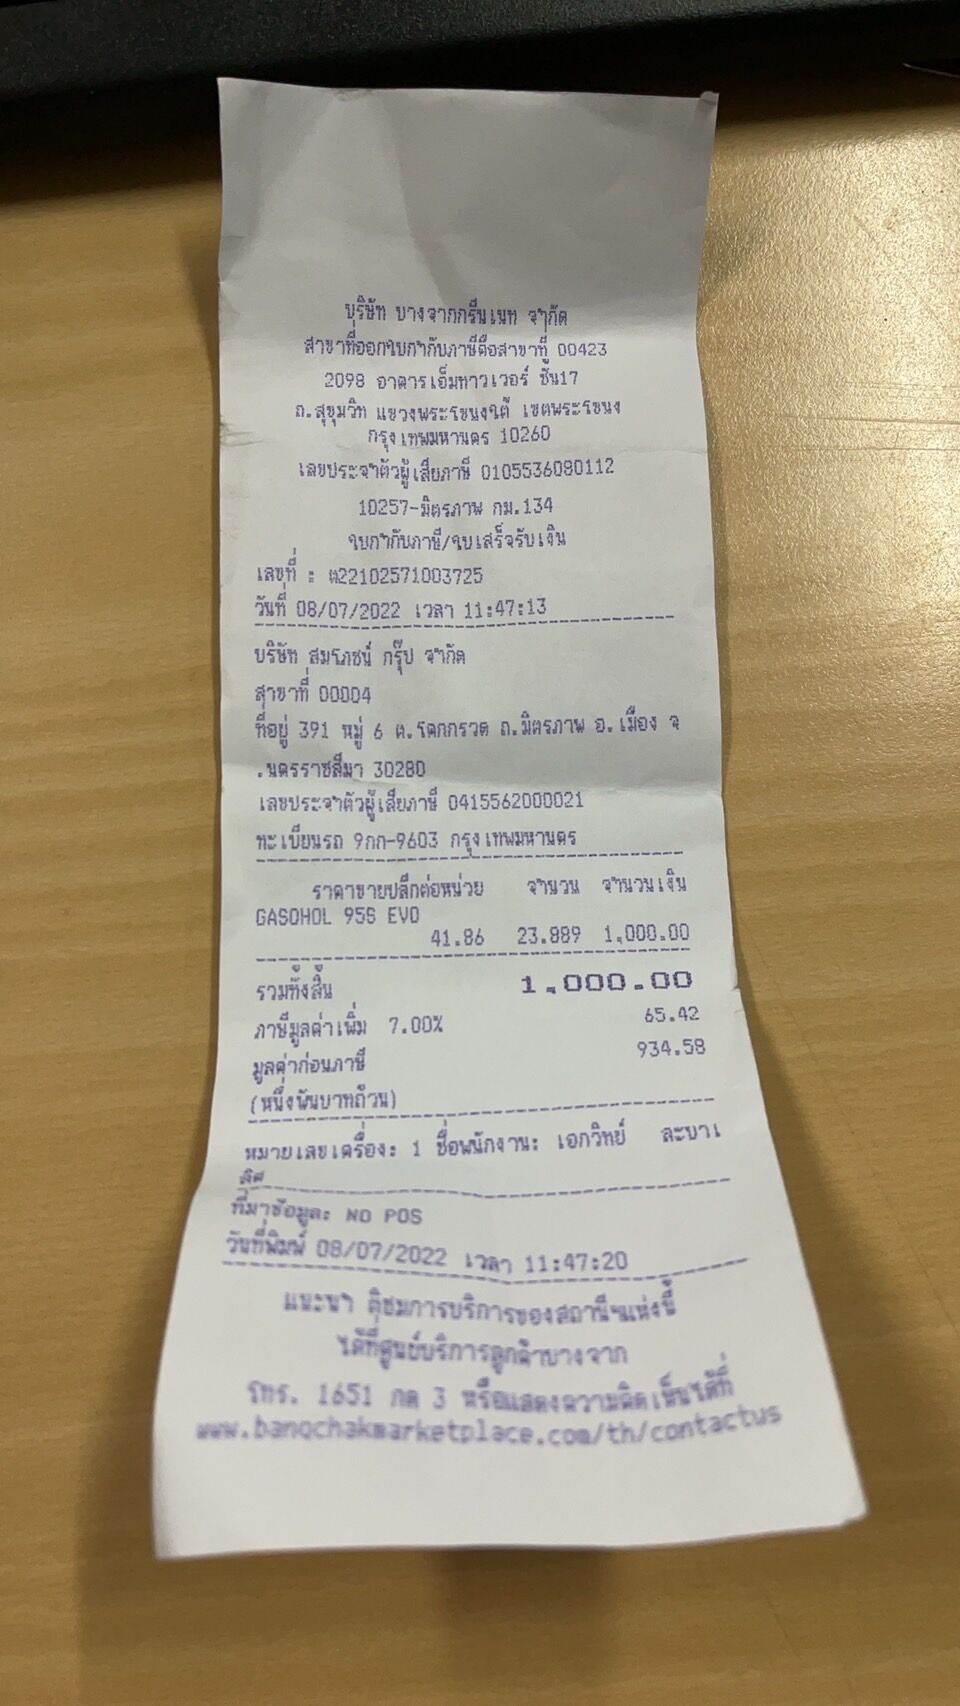 บริษัท บางจากกรีนเนท จำกัด
สาขาที่ออกใบกำกับภาษีคือสาขาที่ 00423
2098 อาคารเอ็มทาวเวอร์ ชั้น17
ถ.สุขุมวิท แขวงพระโขนงใต้ เขตพระโขนง
กรุงเทพมหานคร 10260
เลขประจำตัวผู้เสียภาษี 0105536080112
10257-มิตรภาพ กม.134
ใบกำกับภาษี/ใบเสร็จรับเงิน
เลขที่ : ต22102571003725
วันที่ 08/07/2022 เวลา 11:47:13
บริษัท สมโภชน์ กรุ๊ป จำกัด
สาขาที่ 00004
ที่อยู่ 391 หมู่ 6 ต.โคกกรวด ถ.มิตรภาพ อ.เมือง จ
.นครราชสีมา 30280
เลขประจำตัวผู้เสียภาษี 0415562000021
ทะเบียนรถ 9กก-9603 กรุงเทพมหานคร
ราคาขายปลีกต่อหน่วย จำนวน จำนวนเงิน
GASOHOL 95S EVO
41.86 23.889 1,000.00
รวมทั้งสิ้น 1,000.00
ภาษีมูลค่าเพิ่ม 7.00% 65.42
มูลค่าก่อนภาษี 934.58
(หนึ่งพันบาทถ้วน)
หมายเลขเครื่อง: 1 ชื่อพนักงาน: เอกวิทย์ ละบาเ
ลิศ
ที่มาข้อมูล: NO POS
วันที่พิมพ์ 08/07/2022 เวลา 11:47:20
แนะนำ ติชมการบริการของสถานีฯแห่งนี้
ได้ที่ศูนย์บริการลูกค้าบางจาก
โทร. 1651 กด 3 หรือแสดงความคิดเห็นได้ที่
www.bangchakmarketplace.com/th/contactus